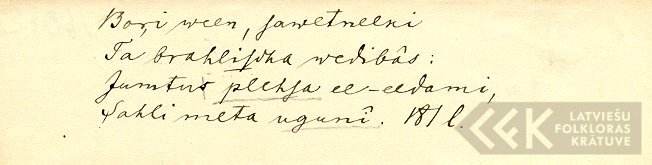 Boŗi ween, sawetneeki
Ta brahlischa wedibâs:
Jumtus plehsa ee-eedami,
Sahli meta ugunî. 181 l.
LATVIEŠU
FOLKLORAS
KRĀTUVE